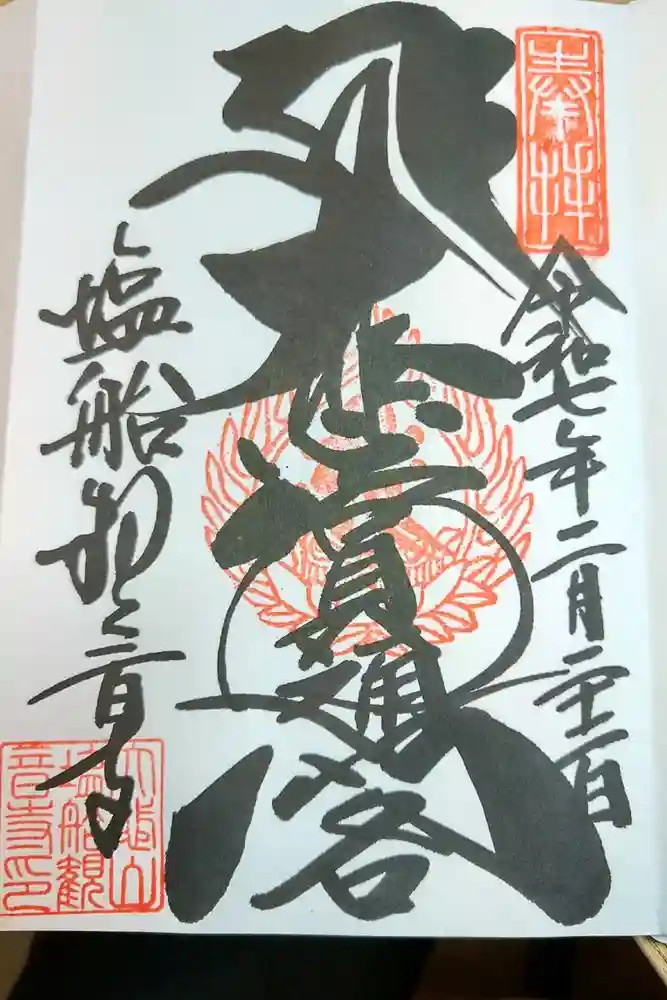 奉拝
令和七年二月二十二日
大悲圓通閣
塩船観音寺
大悲山
塩船観
音寺印